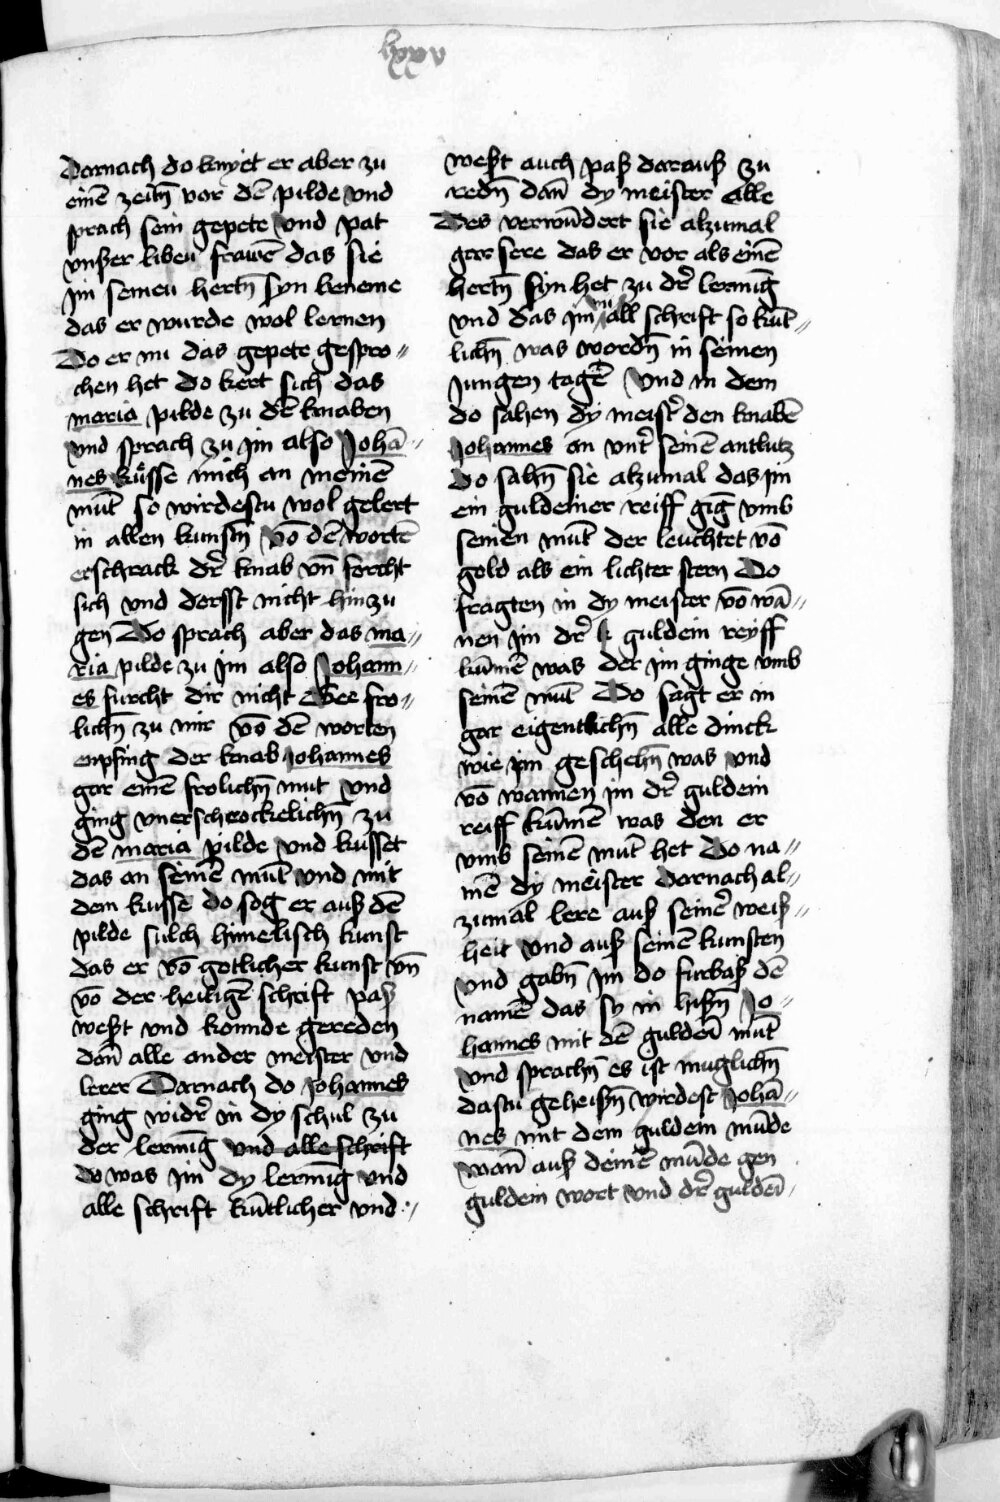 lxxv
Darnach do knyet er aber zu
einē zeitn̄ vor dē pilde vnd
sprach sein gepete vnd pat
vnßer liben frawē das sie
jm seinen hertn̄ syn beneme
das er wurde wol lernen
Do er nu das gepete gespro〃
chen het do kert sich das
maria pilde zu dē knaben
vnd sprach zu jm also Johā〃
nes küsse mich an meinē
mūt so wirdestu wol gelert
in allen kunstn̄ vō dē wortē
erschrack dr̄ knab vn̄ forcht
sich vnd dorfft nicht hinzu
gen Do sprach aber das ma〃
ria pilde zu jm also Johann〃
es furcht dir nicht Gee fro〃
lichn̄ zu mir vō dē worten
enpfing der knab Johannes
gar einē frolichn̄ mut vnd
ging vnerschrockelichn̄ zu
dē maria pilde vnd kusset
das an seinē mūt vnd mit
dem kusse do sog er auß dē
pilde sulch himelisch kunst
das er vō gotlicher kunst vn̄
vō der heiligē schrift paß
weßt vnd konnde gereden
dan̄ alle ander meister vnd
lerer Darnach do Johannes
ging widr̄ in dy schul zu
der lernūg vnd alle schrift
do was jm dy lernūg vnd
alle schrift kūtlicher vnd〃
weßt auch paß darauß zu
redn̄ dan̄ dy meister alle
Des verwūdert sie alzumal
gar sere das er vor als einē
hertn̄ syn het zu dr̄ lernūg
vnd das jm nu all schrift so kūt〃
lichn̄ was wordn̄ in seinen
jungen tagē Vnd in dem
do sahen dy meistr̄ den knabē
Johannes an vntr̄ seinē antlutz
Do sahn̄ sie alzumal das jm
ein guldeiner reiff gīg vmb
seinen mūt der leuchtet vō
gold als ein lichter stern Do
fragten in dy meister vō wā〃
nen jm dr̄ guldein reyff
kūmē was der jm ginge vmb
seinē mūt Do sagt er in
gar eigentlichn̄ alle dinck
wie jm geschehn̄ was vnd
vō wannen jm dr̄ guldein
reiff kūmē was den er
vmb seinē mūt het Do na〃
mē dy meister darnach al〃
zumal lere auß seinē weiß〃
heit vnd auß seinē kunsten
vnd gabn̄ jm do furbaß dē
namē das sy in hißn̄ Jo〃
hannes mit dē guldeī mūt
vnd sprachn̄ es ist muglichn̄
dastu geheißn̄ wirdest Johā〃
nes mit dem guldem mūde
wan̄ auß deinē mūde gen
guldein wort vnd dr̄ guldeī〃